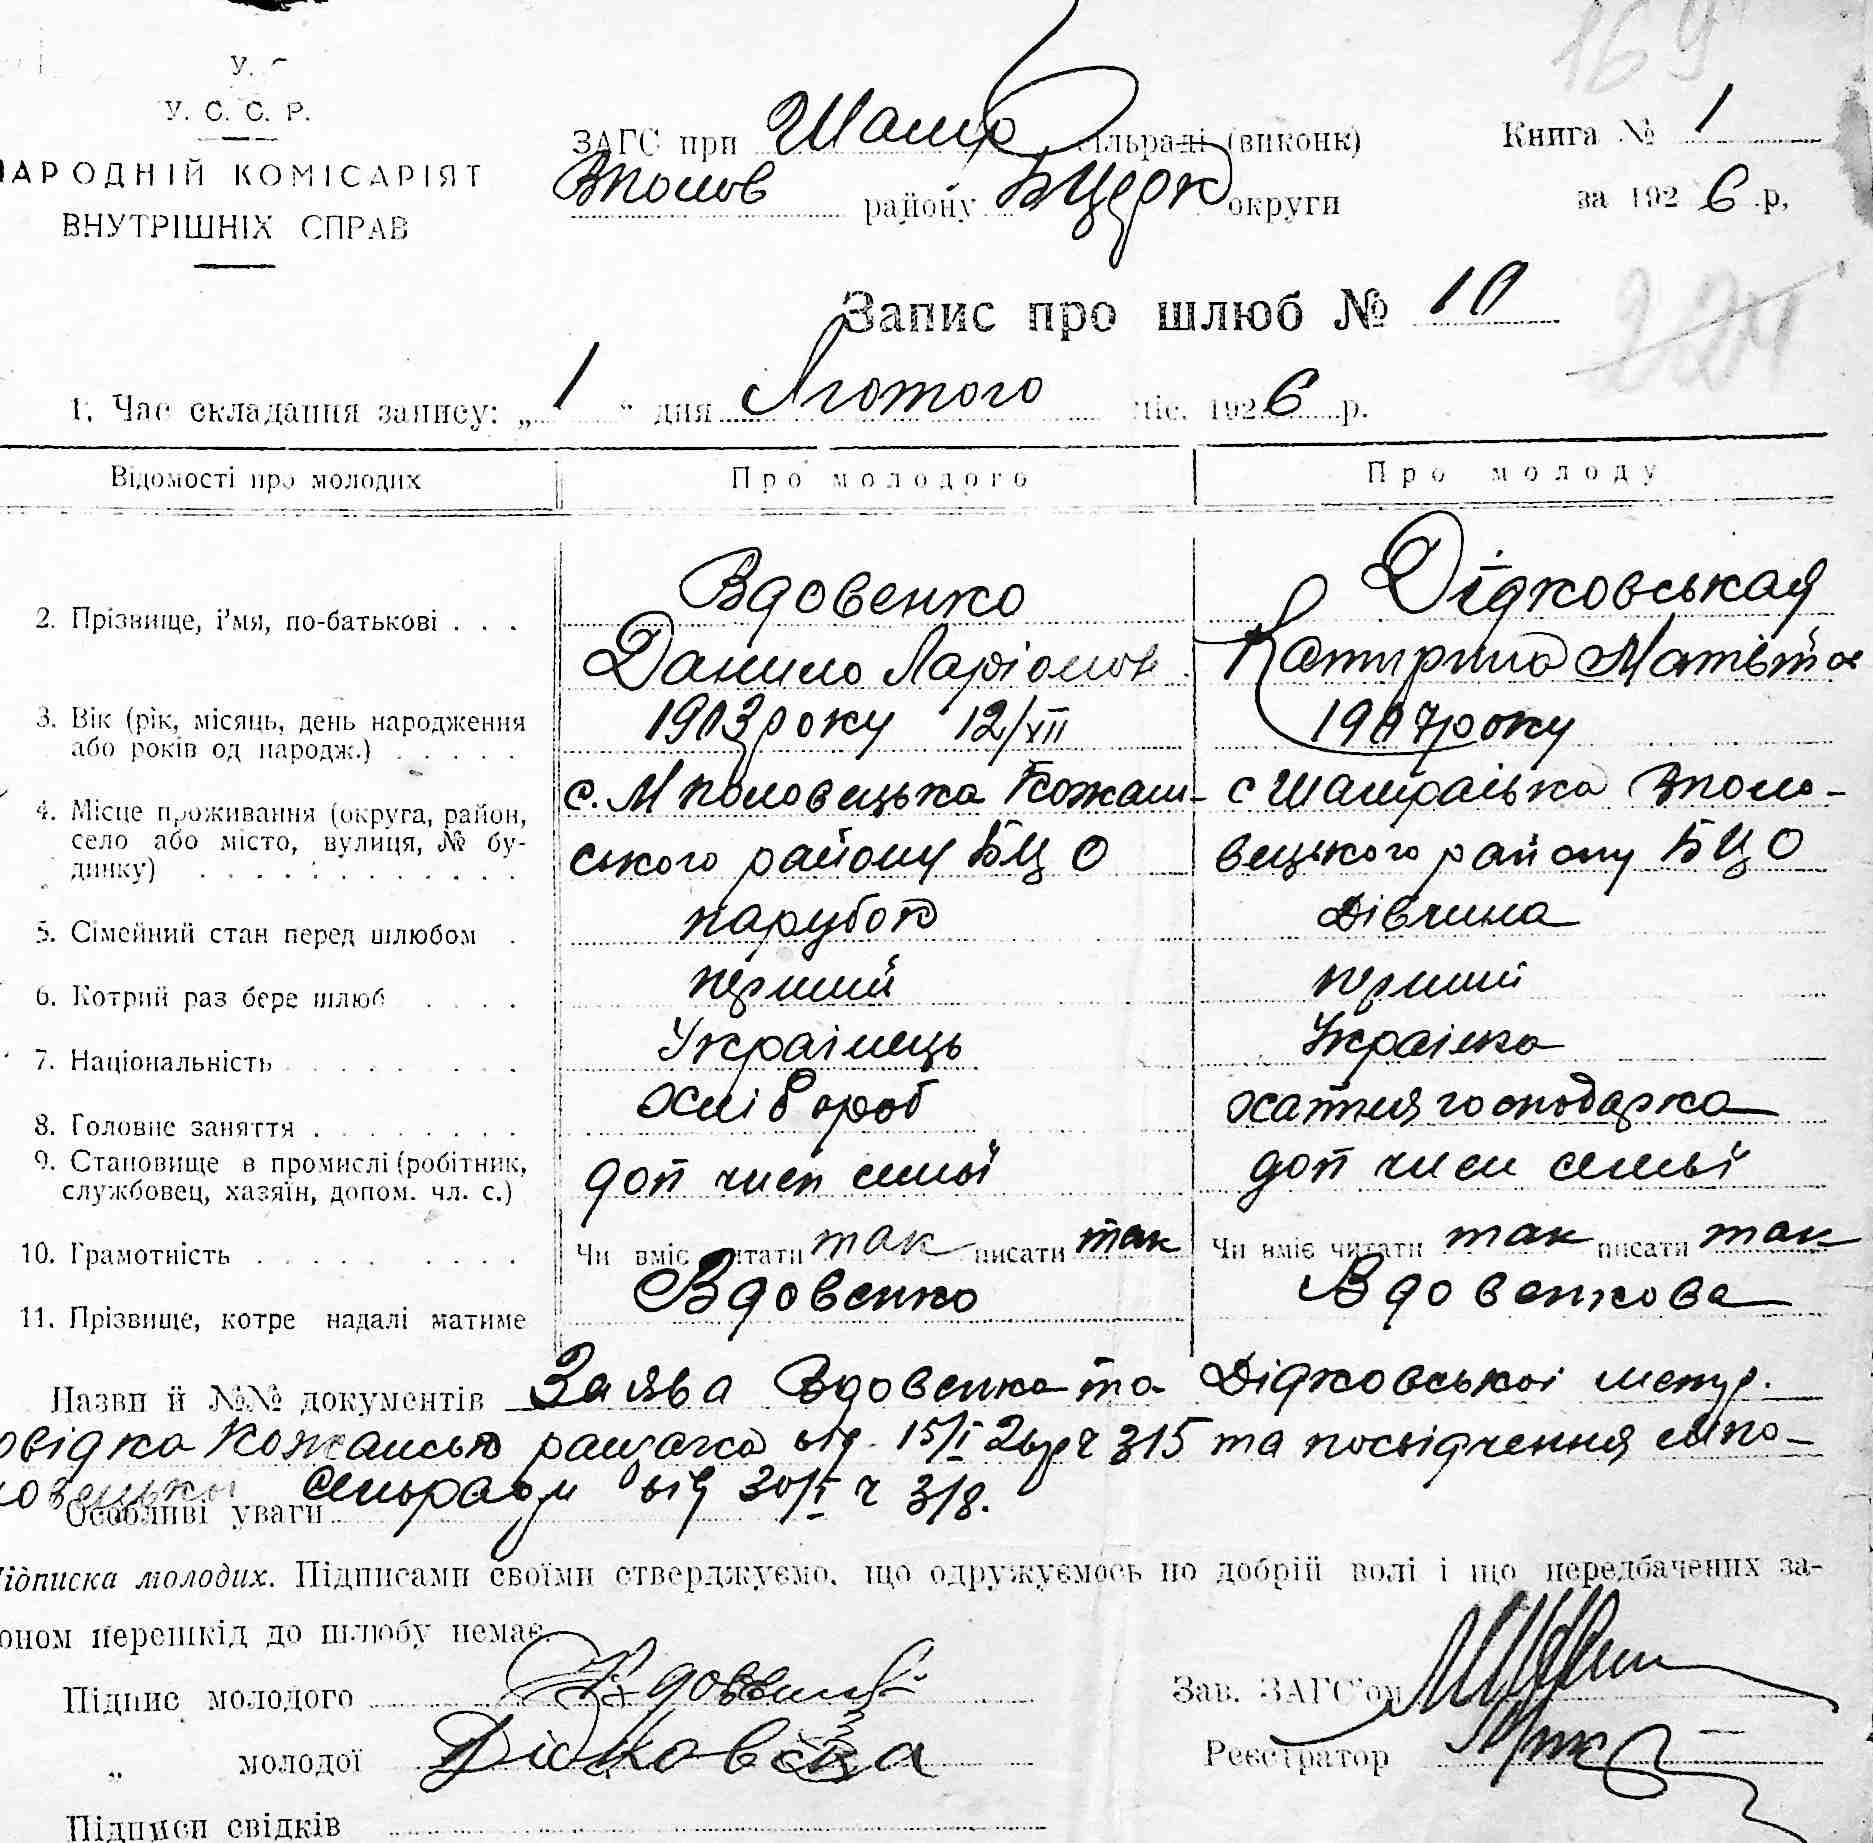 169
У. С. С. Р.
НАРОДНІЙ КОМІСАРІЯТ
ВНУТРІШНІХ СПРАВ
ЗАГС при Шамр сільраді (виконк)
Вполов району БЦерк округи
Книга № 1
за 1926 р,
Запис про шлюб № 10
224
1. Час складання запису: „1" дня Лютого міс. 1926 р.
Відомості про молодих Про молодого Про молоду
2. Прізвище, і'мя, по-батькові . . . Вдовенко Дідковськая
Данило Ларіонов Катирина Матвіївна
3. Вік (рік, місяць, день народження 1903 року 12/XII 1907 року
або років од народж.)
4. Місце проживання (округа, район, с. М половецька Кожан- с Шамраївка Вполо-
село або місто, вулиця, № бу- ського району БЦО вецького району БЦО
динку)
5. Сімейний стан перед шлюбом . парубок дівчина
6. Котрий раз бере шлюб перший перший
7. Національність Українець Українка
8. Головне заняття хлібороб хатня господарка
9. Становище в промислі (робітник, доп член семьї доп член семьї
службовец, хазяїн, допом. чл. с.)
10. Грамотність Чи вміє читати так писати так Чи вміє читати так писати так
11. Прізвище, котре надалі матиме Вдовенко Вдовенкова
Назви й №№ документів Заява Вдовенка та Дідковської
овідка Кожанського від 15/I 26 р ч 315 та посвідчення мпо-
ловецької сельради від 30/I ч 318.
Особливі уваги
Підписка молодих. Підписами своїми стверджуємо, що одружуємось по добрій волі і що передбачених за-
коном перешкід до шлюбу немає.
Підпис молодого Вдовенко Зав. ЗАГС'ом
„ молодої Дідковска Реєстратор
Підписи свідків